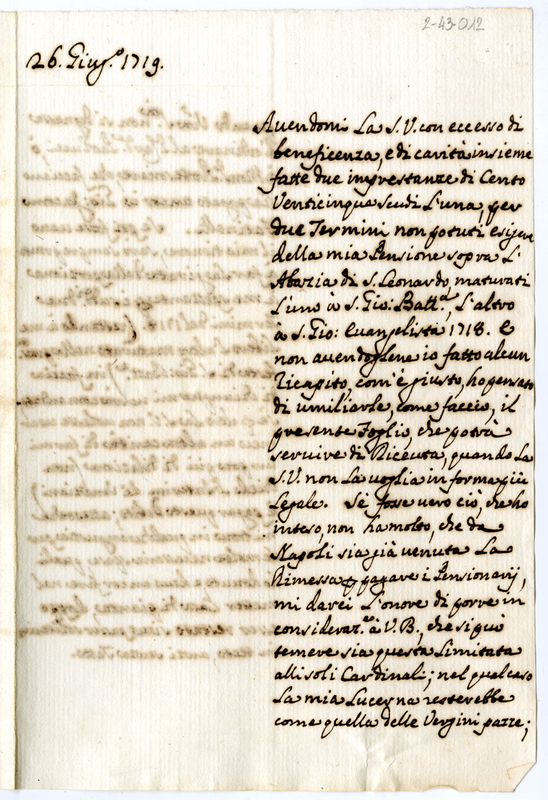 2-43-012
26. Giug.º 1719.
Auendomi La S. V. con eccesso di
beneficenza, e di carità insieme
fatte due imprestanze di Cento
Venticinque scudi L'una, per
due Termini non potuti esigere
della mia Pensione sopra L'
Abazia di S. Leonardo, maturati
L'uno à S. Gio: Batt.ª, L'altro
à S. Gio: Euangelista 1718. e
non auendoglene io fatto alcun
Ricapito, com'è giusto, ho pensato
di umiliarle, come faccio, il
presente Foglio, che potrà
seruire di Riceuta, quando La
S. V. non La uoglia in forma più
Legale. Se fosse uero ciò, che ho
inteso, non ha molto, che da
Napoli sia già uenuta La
Rimessa p pagare i Pensionarij,
mi darei L'onore di porre in
consideraz.e à V. B., che si può
temere sia questa Limitata
alli soli Cardinali; nel qual caso
La mia Lucerna resterebbe
come quella delle Vergini pazze;